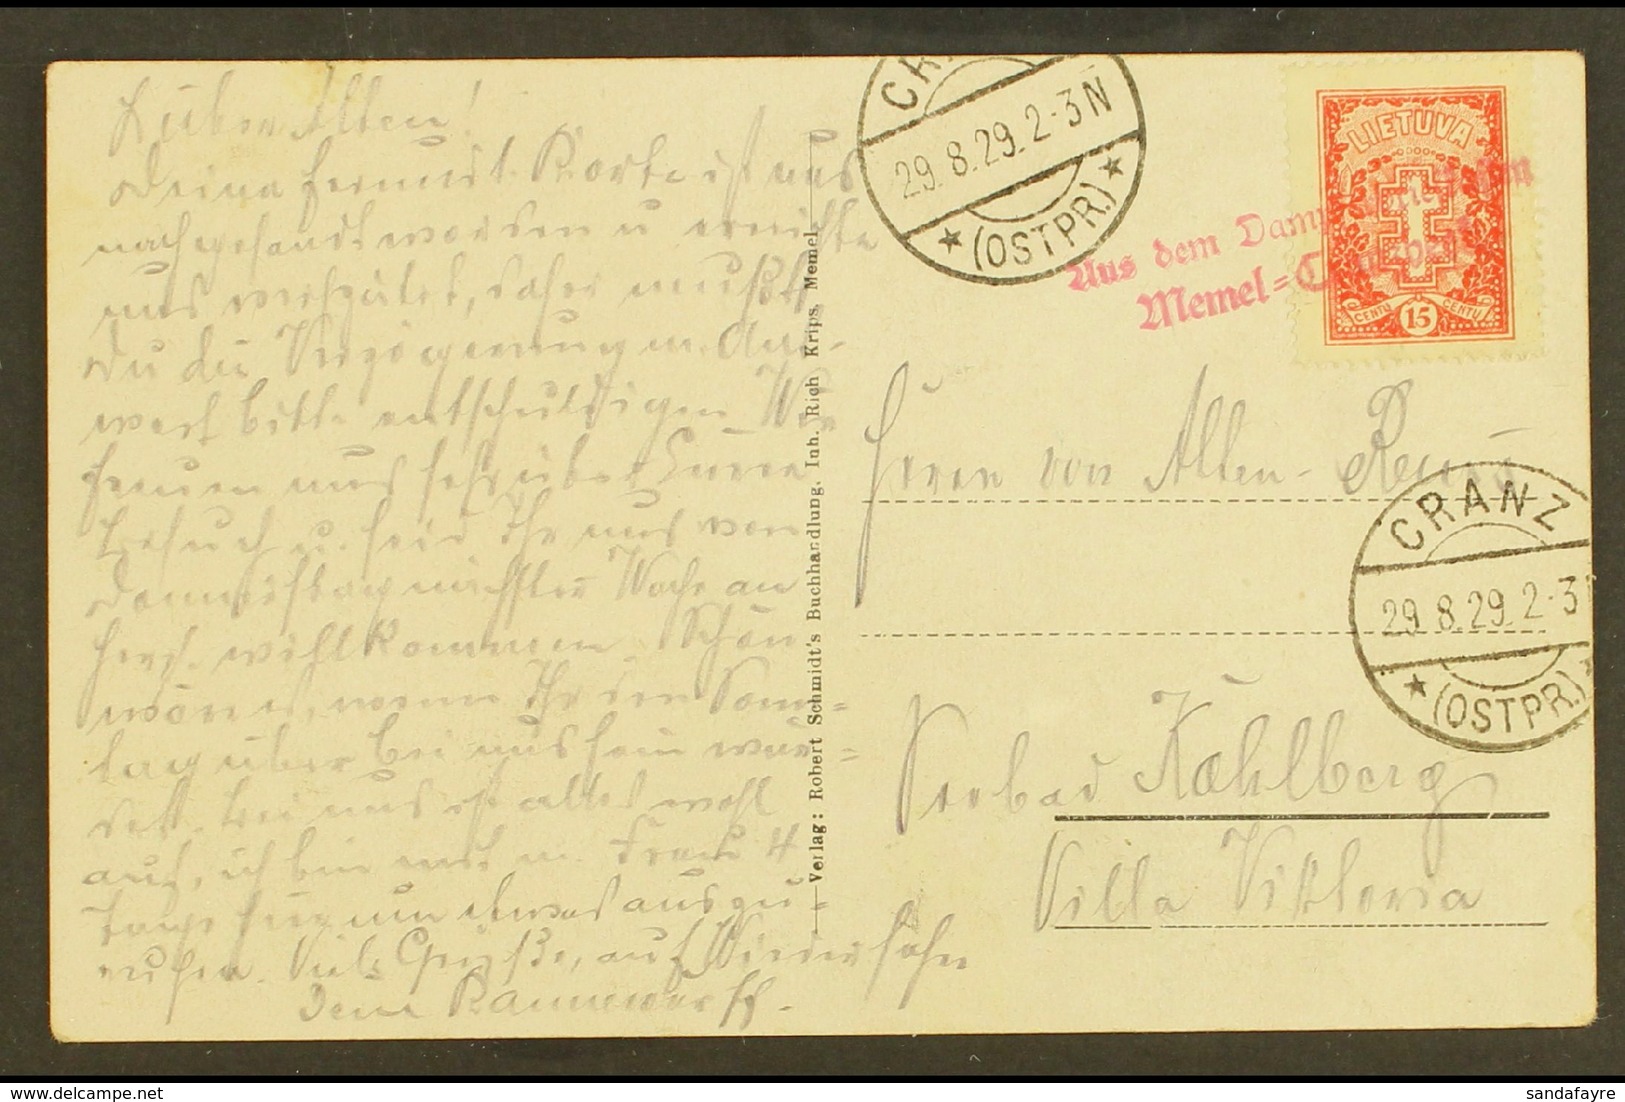 Lieber Alten!
Deine freundl. Karte ist uns
nachgesandt worden u erreichte
uns verspätet, daher mußt
Du die Verzögerung m. Ant-
wort bitte entschuldigen. Wir
freuen uns sehr über Euren
Besuch u. seid Ihr uns von
Donnerstag nächster Woche an
herzl. willkommen. Schön
wäre es, wenn Ihr den Sonn-
tag über bei uns sein wür-
det. Bei uns ist alles wohl
auf, ich bin mit m. Frau 4
Tage hier um etwas auszu-
ruhen. Viele Grüße, auf Wiedersehn
Dein
Verlag: Robert Schmidt's Buchhandlung. Inh. Rich Krips, Memel.
CR
29.8.29. 2-3 N
★ (OSTPR.) ★
LIETUVA
CENTŲ 15 CENTŲ
Aus dem
Memel=
Herrn von Alten-
CRANZ
29.8.29. 2-3
★ (OSTPR.)
Seebad Kahlberg
Villa Viktoria
sandafayre